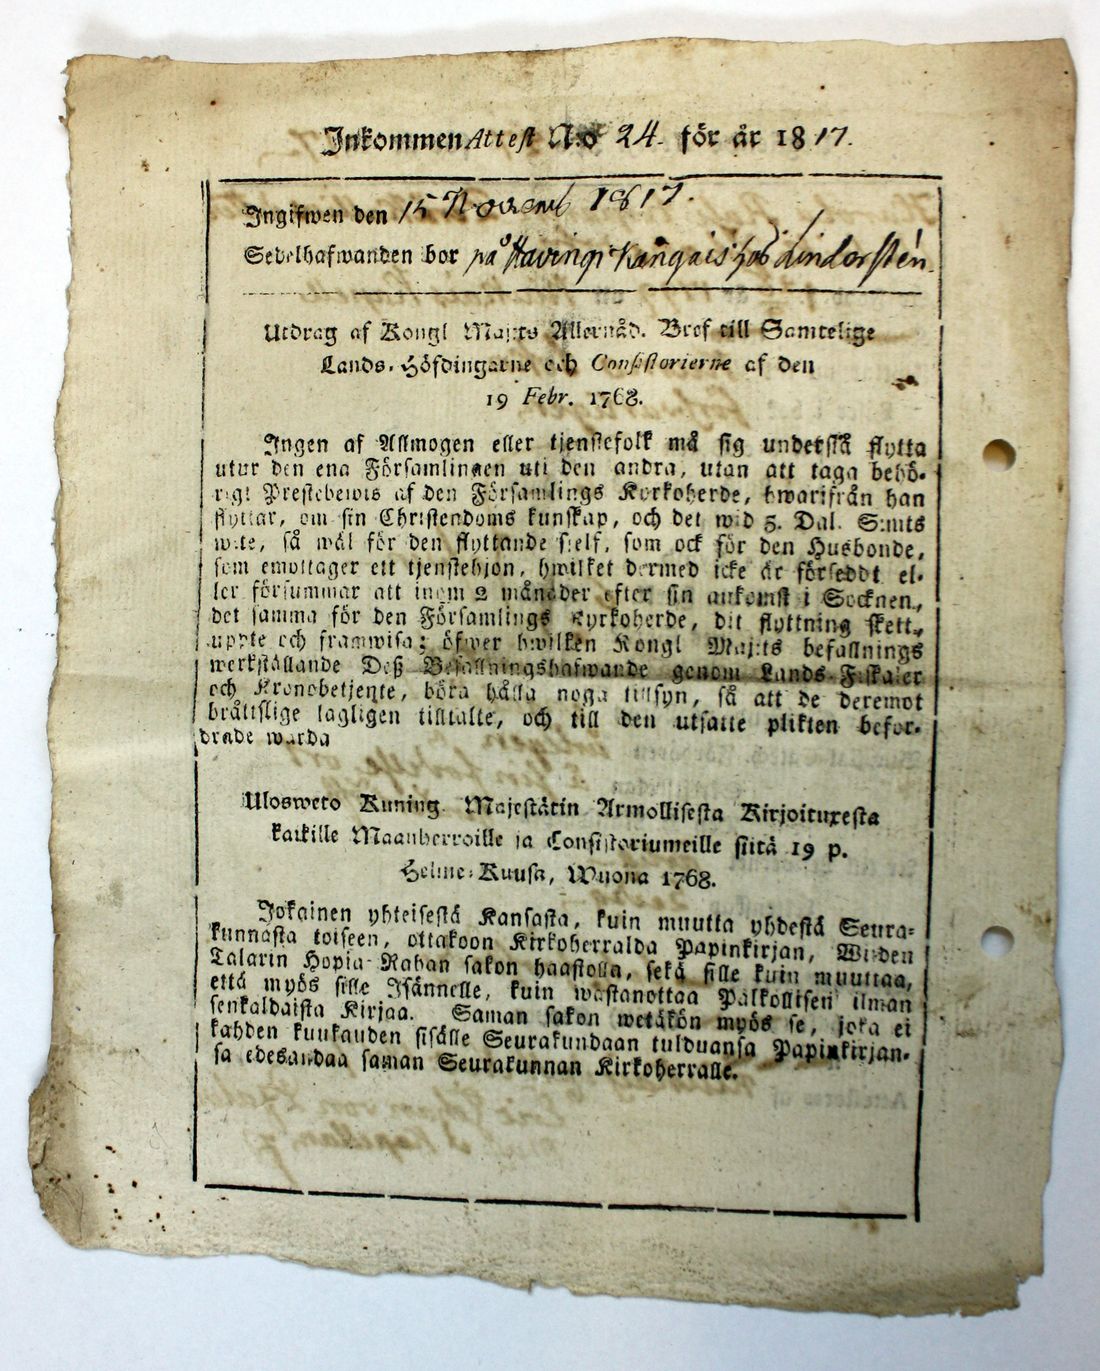 Inkommen Attest N:o 24. för år 1817.
Ingifwen den 15 Novemb 1817.
Sedelhafwanden bor på Havingi Kangais hos Lindorstén.
Utdrag af Kongl Maj:ts Allernåd. Bref till Samtelige
Lands-Höfdingarne och Consistorierne af den
19 Febr. 1768.
Ingen af Allmogen eller tjenstefolk må sig understå flytta
utur den ena Församlingen uti den andra, utan att taga behö-
rigt Prestebewis af den Församlings Kyrkoherde, hwarifrån han
flyttar, om sin Christendoms kunskap, och det wid 5. Dal. S:mts
wite, så wäl för den flyttande sielf, som ock för den Husbonde,
som emottager ett tjenstehjon, hwilket dermed icke är försedt el-
ler försummar att inom 2 månader efter sin ankomst i Socknen,
det samma för den Församlings Kyrkoherde, dit flyttning skett,
uppte och framwisa; öfwer hwilken Kongl Maj:ts befallnings
werkställande Deß Befallningshafwande genom Lands-Fiskaler
och Kronobetjente, böra hålla noga tillsyn, så att de deremot
bråttslige lagligen tilltalte, och till den utsatte plikten befor-
drade warda
Ulosweto Kuning. Majestätin Armollisesta Kirjoituxesta
kaikille Maanherroille ja Consistoriumeille siitä 19 p.
Helme-Kuusa, Wuona 1768.
Jokainen yhteisestä Kansasta, kuin muutta yhdestä Seura-
kunnasta toiseen, ottakoon Kirkoherralda Papinkirjan, Wiiden
Talarin Hopia-Rahan sakon haastolla, sekä sille kuin muuttaa,
että myös sille Isännelle, kuin wastanottaa Palkollisen ilman
senkaldaista Kirjaa. Saman sakon wetäkön myös se, joka ei
kahden kuukauden sisälle Seurakundaan tulduansa Papinkirjan-
sa edesandaa saman Seurakunnan Kirkoherralle.